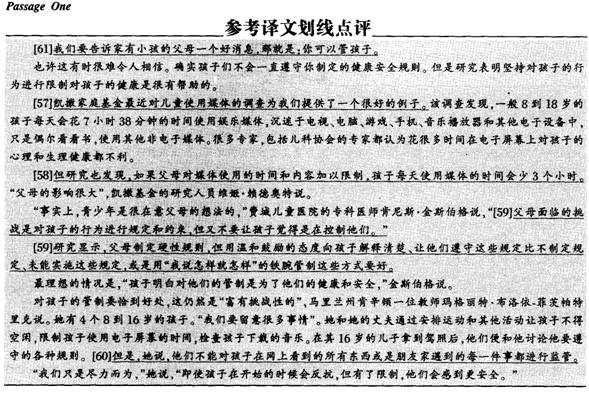 Passage One
参考译文划线点评
[61]我们要告诉家有小孩的父母一个好消息,那就是:你可以管孩子。
也许这有时很难令人相信。确实孩子们不会一直遵守你制定的健康安全规则。但是研究表明坚持对孩子的行
为进行限制对孩子的健康是很有帮助的。
[57]凯撒家庭基金最近对儿童使用媒体的调查为我们提供了一个很好的例子。该调查发现,一般8到18岁的
孩子每天会花7小时38分钟的时间使用娱乐媒体,沉迷于电视、电脑、游戏、手机、音乐播放器和其他电子设备中,
只是偶尔看看书,使用其他非电子媒体。很多专家,包括儿科协会的专家都认为花很多时间在电子屏幕上对孩子的
心理和生理健康都不利。
[58]但研究也发现,如果父母对媒体使用的时间和内容加以限制,孩子每天使用媒体的时间会少3个小时。
“父母的影响很大”,凯撒基金的研究人员维姬·赖德奥特说。
“事实上,青少年是很在意父母的想法的,”费城儿童医院的专科医师肯尼斯·金斯伯格说,“[59]父母面临的挑
战是对孩子的行为进行规定和约束,但又不要让孩子觉得是在控制他们。”
[59]研究显示,父母制定硬性规则,但用温和鼓励的态度向孩子解释清楚、让他们遵守这些规定比不制定规
定、未能实施这些规定,或是用“我说怎样就怎样”的铁腕管制这些方式要好。
最理想的情况是,“孩子明白对他们的管制是为了他们的健康和安全,”金斯伯格说。
对孩子的管制要恰到好处,这仍然是“富有挑战性的”,马里兰州肯辛顿一位教师玛格丽特·布洛依-菲茨帕特
里克说。她有4个8到16岁的孩子。“我们要留意很多事情”。她和她的丈夫通过安排运动和其他活动让孩子不得
空闲,限制孩子使用电子屏幕的时间,检查孩子下载的音乐。在其16岁的儿子拿到驾照后,他们便和他讨论他要遵
守的各种规则。[60]但是,她说,他们不能对孩子在网上看到的所有东西或是朋友家遇到的每一件事都进行监管。
“我们只是尽力而为,”她说,“即使孩子在开始的时候会反抗,但有了限制,他们会感到更安全。”